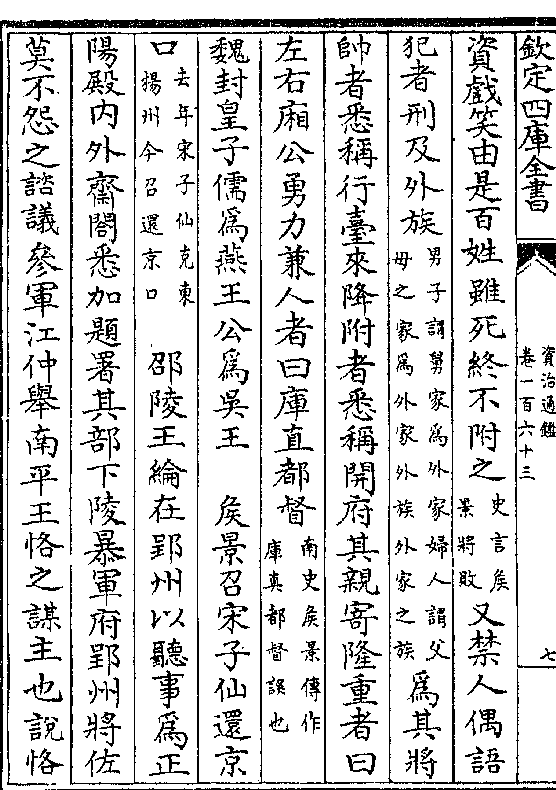 欽定四庫全書
資治通鑑
卷一百六十三
七
資戲笑由是百姓雖死終不附之史言侯景將敗又禁人偶語
犯者刑及外族男子謂舅家為外家婦人謂父母之家為外家外族外家之族為其將
帥者悉稱行臺來降附者悉稱開府其親寄隆重者曰
左右廂公勇力兼人者曰庫直都督南史侯景傳作庫真都督誤也
魏封皇子儒為燕王公為吳王 侯景召宋子仙還京
口去年宋子仙克東揚州今召還京口 邵陵王綸在郢州以聽事為正
陽殿内外齋閤悉加題署其部下陵暴軍府郢州將佐
莫不怨之諮議參軍江仲舉南平王恪之謀主也說恪